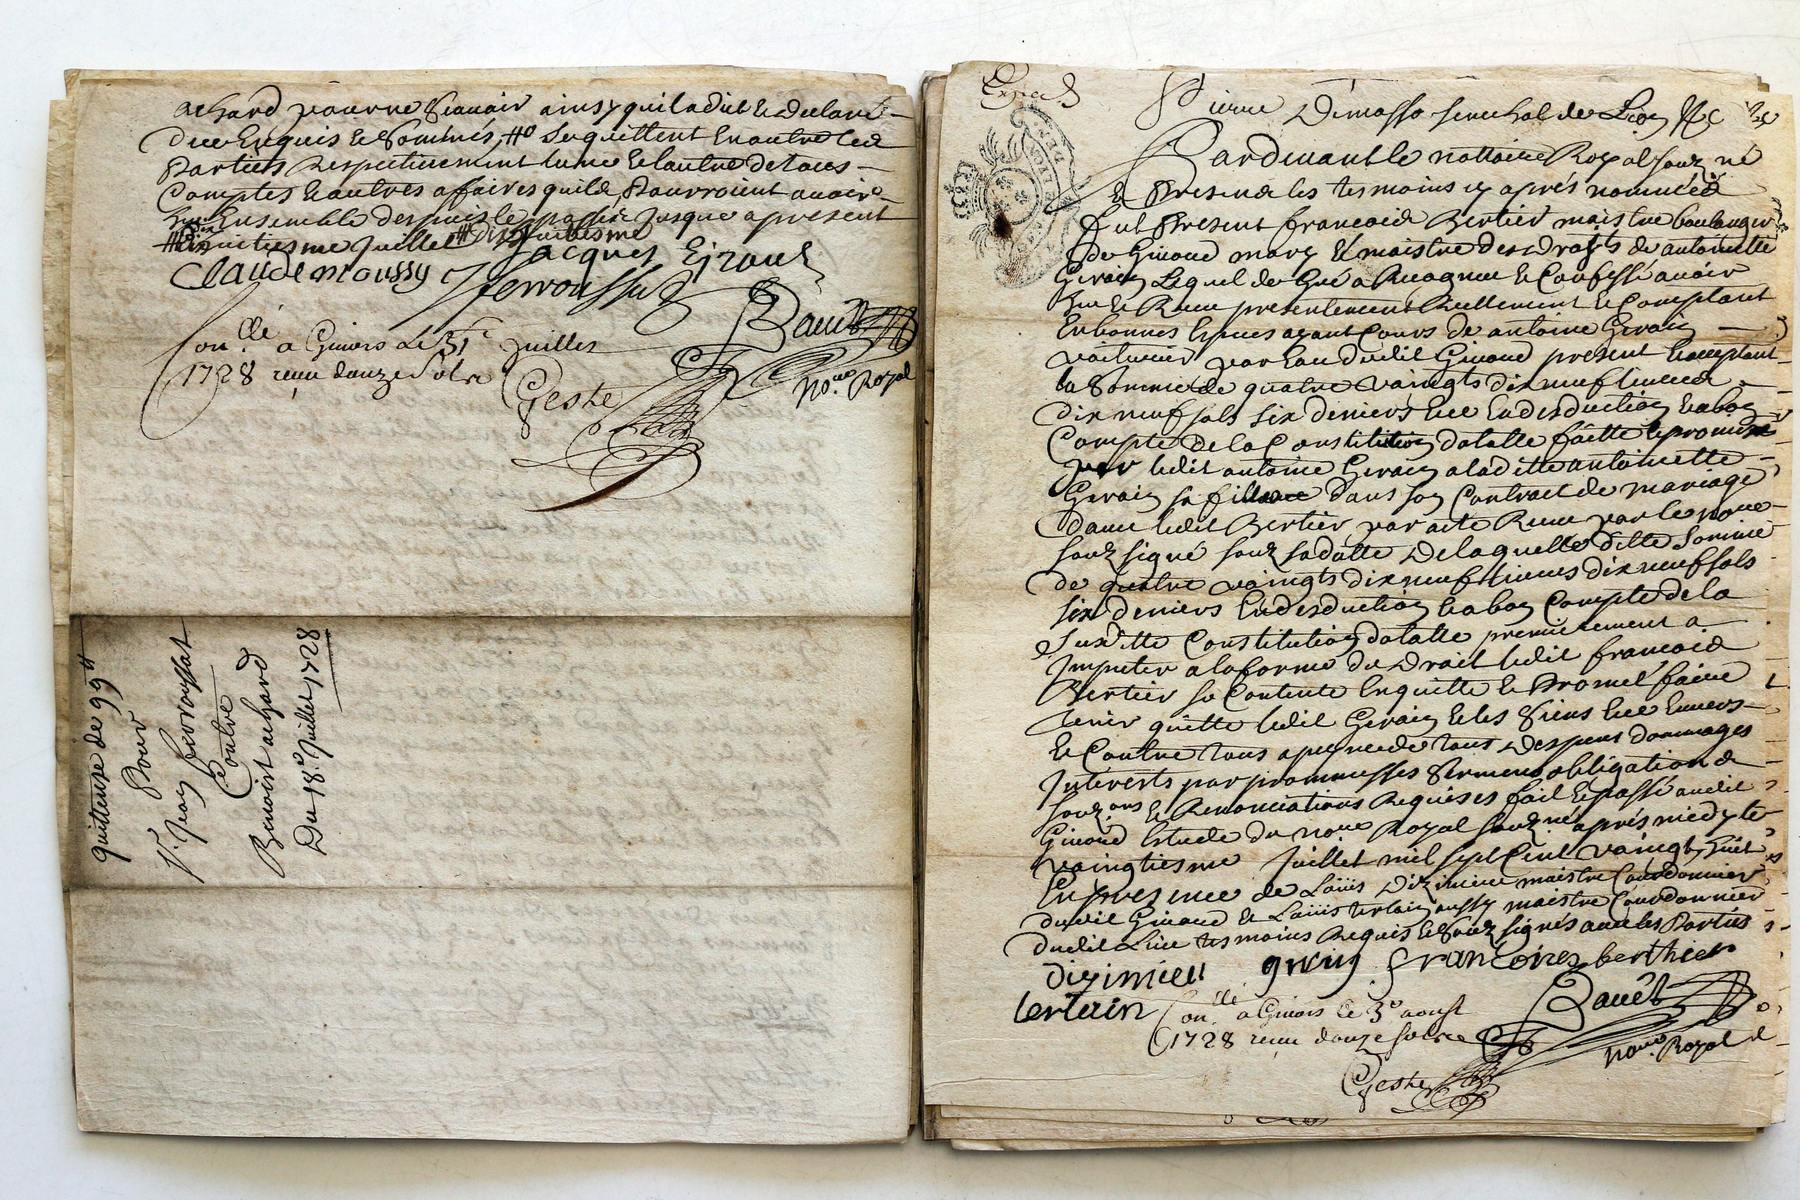 achard pour ne scavoir ainsy quil a dit et declaré
de ce Enquis et Sommés, se quittent En outre led
Parties Respectivement lune et lautre de tous
Comptes et autres affaires quils Pourroient avoir
Ensemble despuis le passé Jusque a present
dixhuitiesme Juillet
Claude moussy Jacques Giraud
ferroussat
Baudt
no.re Royal
Con.llé a Givors Le 31e Juillet
1728 receu douze sols
Geste
quittance de 99tt
Pour
Sr. Jean ferroussat
Contre
Benoist achard
Du 18e Juillet 1728
Exped
Pierre Demasso senechal de Lion
Pardevant le nottaire Royal souz.né
et Presends les tesmoins cy aprés nommées
fut Present francois Bertier maistre boulanger
de Givord mary et maistre des Droits de antoinette
Gervais Lequel de Gré a Recogneu et Confessé avoir
Eu et Receu presentement Reellement et Comptant
En bonnes Especes ayant Cours de antoine Gervais
voiturier par Eau dudit Givord present Ecceptant
la Somme de quatre vaingts dix neuf livres
dix neuf sols six deniers Ence En desduction et a bon
Compte de la Constitution dotalle faitte et promise
par ledit antoine Gervais a la ditte antoinette
Gervais sa fille dans son Contract de mariage
avec ledit Bertier par acte Receu par le no.re
souz signé souz sa datte De laquelle ditte Somme
de quatre vaingts dix neuf livres dix neuf sols
six deniers En desduction et a bon Compte de la
susditte Constitution dotalle premierement a
Imputer a la forme du Droit ledit francois
Bertier se Contente En quitte et Promet faire
tenir quitte ledit Gervais et les Siens Ence Envers
et Contre tous a peyne de tous Despens dommages
Interests par promesses Serment obligation de
souz.ons et Renonciations Requises fait et passé audit
Givord Estude du no.re Royal souz.né aprés midy le
vaingtiesme Juillet mil sept Cent vaingt huit
En presence de Loüis Dizimieu maistre Courdonnier
dudit Givord et Loüis tertain aussy maistre Courdonnier
dudit Lieu tesmoins Requis et souz signés avec les Parties
dizimieu francoies berthier
tertain
Con.llé a Givors Le 3e aoust
1728 receu douze sols
Geste
Baudt
no.re Royal